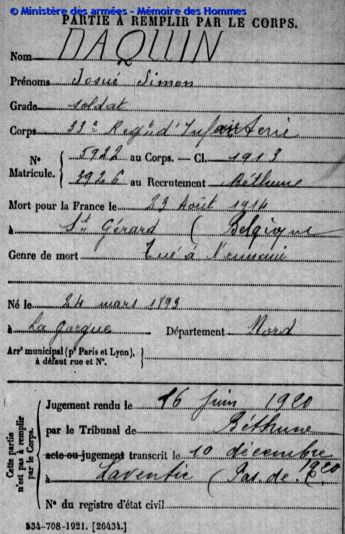 © Ministère des armées - Mémoire des Hommes
PARTIE À REMPLIR PAR LE CORPS.
Nom DAQUIN
Prénoms Josué Simon
Grade soldat
Corps 33e Regt d'Infanterie
N° Matricule. { 5922 au Corps. — Cl. 1913
2926 au Recrutement Béthune
Mort pour la France le 23 Août 1914
à St Gérard (Belgique
Genre de mort Tué à l'ennemi
Né le 24 mars 1893
à La Gorgue Département Nord
Arrt municipal (pr Paris et Lyon), à défaut rue et N°. }
Cette partie n'est pas à remplir par le Corps.
Jugement rendu le 16 Juin 1920
par le Tribunal de Béthune
acte ou jugement transcrit le 10 décembre 1920
à Laventie (Pas-de-C.
N° du registre d'état civil
534-708-1921. [26434.]